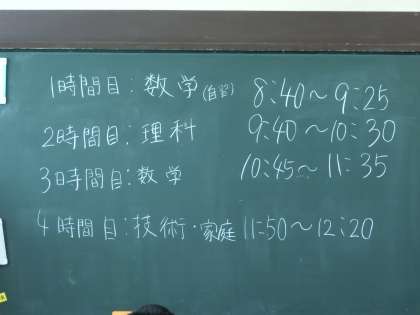 1時間目:数学(自習) 8:40～9:25
2時間目:理科 9:40～10:30
3時間目:数学 10:45～11:35
4時間目:技術・家庭 11:50～12:20